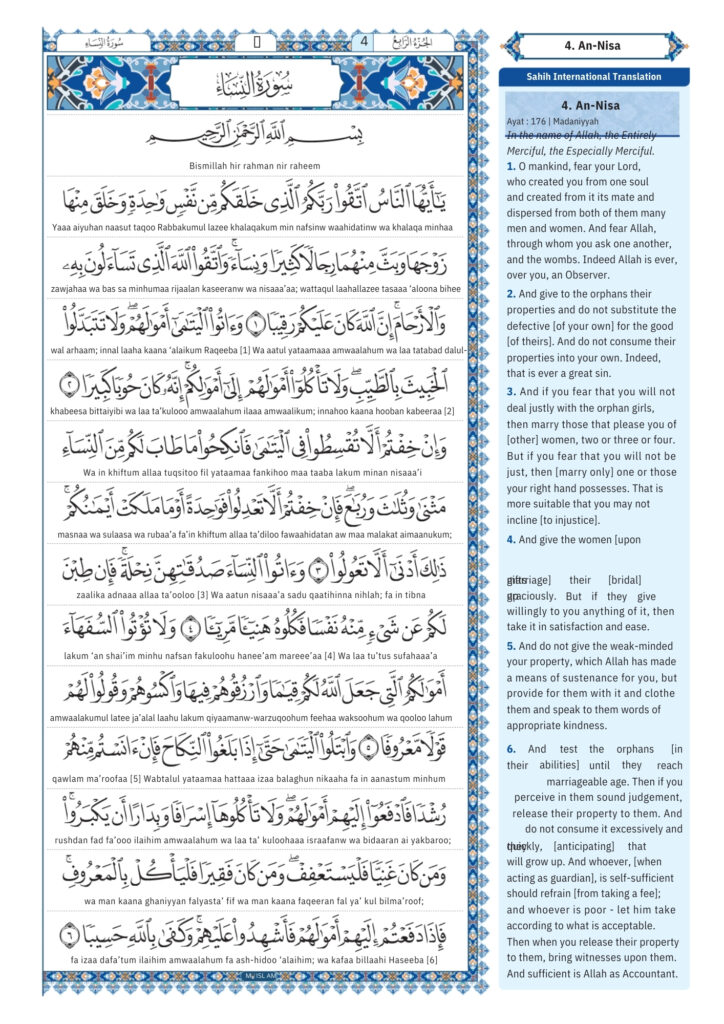 سُورَةُ النِّسَاءِ
4
الجُزْءُ الرَّابِعُ
سُورَةُ النِّسَاءِ
بِسْمِ اللَّهِ الرَّحْمَٰنِ الرَّحِيمِ
Bismillah hir rahman nir raheem
يَـٰٓأَيُّهَا ٱلنَّاسُ ٱتَّقُوا۟ رَبَّكُمُ ٱلَّذِى خَلَقَكُم مِّن نَّفْسٍ وَٰحِدَةٍ وَخَلَقَ مِنْهَا
Yaaa aiyuhan naasut taqoo Rabbakumul lazee khalaqakum min nafsinw waahidatinw wa khalaqa minhaa
زَوْجَهَا وَبَثَّ مِنْهُمَا رِجَالًا كَثِيرًا وَنِسَآءً ۚ وَٱتَّقُوا۟ ٱللَّهَ ٱلَّذِى تَسَآءَلُونَ بِهِۦ
zawjahaa wa bas sa minhumaa rijaalan kaseeranw wa nisaaa'aa; wattaqul laahallazee tasaaa 'aloona bihee
وَٱلْأَرْحَامَ ۚ إِنَّ ٱللَّهَ كَانَ عَلَيْكُمْ رَقِيبًا ١ وَءَاتُوا۟ ٱلْيَتَـٰمَىٰٓ أَمْوَٰلَهُمْ ۖ وَلَا تَتَبَدَّلُوا۟
wal arhaam; innal laaha kaana 'alaikum Raqeeba [1] Wa aatul yataamaa amwaalahum wa laa tatabad dalul-
ٱلْخَبِيثَ بِٱلطَّيِّبِ ۖ وَلَا تَأْكُلُوٓا۟ أَمْوَٰلَهُمْ إِلَىٰٓ أَمْوَٰلِكُمْ ۚ إِنَّهُۥ كَانَ حُوبًا كَبِيرًا ٢
khabeesa bittaiyibi wa laa ta'kulooo amwaalahum ilaaa amwaalikum; innahoo kaana hooban kabeeraa [2]
وَإِنْ خِفْتُمْ أَلَّا تُقْسِطُوا۟ فِى ٱلْيَتَـٰمَىٰ فَٱنكِحُوا۟ مَا طَابَ لَكُم مِّنَ ٱلنِّسَآءِ
Wa in khiftum allaa tuqsitoo fil yataamaa fankihoo maa taaba lakum minan nisaaa'i
مَثْنَىٰ وَثُلَـٰثَ وَرُبَـٰعَ ۖ فَإِنْ خِفْتُمْ أَلَّا تَعْدِلُوا۟ فَوَٰحِدَةً أَوْ مَا مَلَكَتْ أَيْمَـٰنُكُمْ ۚ
masnaa wa sulaasa wa rubaa'a fa'in khiftum allaa ta'diloo fawaahidatan aw maa malakat aimaanukum;
ذَٰلِكَ أَدْنَىٰٓ أَلَّا تَعُولُوا۟ ٣ وَءَاتُوا۟ ٱلنِّسَآءَ صَدُقَـٰتِهِنَّ نِحْلَةً ۚ فَإِن طِبْنَ
zaalika adnaaa allaa ta'ooloo [3] Wa aatun nisaaa'a sadu qaatihinna nihlah; fa in tibna
لَكُمْ عَن شَىْءٍ مِّنْهُ نَفْسًا فَكُلُوهُ هَنِيٓـًٔا مَّرِيٓـًٔا ٤ وَلَا تُؤْتُوا۟ ٱلسُّفَهَآءَ
lakum 'an shai'im minhu nafsan fakuloohu hanee'am mareee'aa [4] Wa laa tu'tus sufahaaa'a
أَمْوَٰلَكُمُ ٱلَّتِى جَعَلَ ٱللَّهُ لَكُمْ قِيَـٰمًا وَٱرْزُقُوهُمْ فِيهَا وَٱكْسُوهُمْ وَقُولُوا۟ لَهُمْ
amwaalakumul latee ja'alal laahu lakum qiyaamanw-warzuqoohum feehaa waksoohum wa qooloo lahum
قَوْلًا مَّعْرُوفًا ٥ وَٱبْتَلُوا۟ ٱلْيَتَـٰمَىٰ حَتَّىٰٓ إِذَا بَلَغُوا۟ ٱلنِّكَاحَ فَإِنْ ءَانَسْتُم مِّنْهُمْ
qawlam ma'roofaa [5] Wabtalul yataamaa hattaaa izaa balaghun nikaaha fa in aanastum minhum
رُشْدًا فَٱدْفَعُوٓا۟ إِلَيْهِمْ أَمْوَٰلَهُمْ ۖ وَلَا تَأْكُلُوهَآ إِسْرَافًا وَبِدَارًا أَن يَكْبَرُوا۟ ۚ
rushdan fad fa'ooo ilaihim amwaalahum wa laa ta' kuloohaaa israafanw wa bidaaran ai yakbaroo;
وَمَن كَانَ غَنِيًّا فَلْيَسْتَعْفِفْ ۖ وَمَن كَانَ فَقِيرًا فَلْيَأْكُلْ بِٱلْمَعْرُوفِ ۚ
wa man kaana ghaniyyan falyasta' fif wa man kaana faqeeran fal ya' kul bilma'roof;
فَإِذَا دَفَعْتُمْ إِلَيْهِمْ أَمْوَٰلَهُمْ فَأَشْهِدُوا۟ عَلَيْهِمْ ۚ وَكَفَىٰ بِٱللَّهِ حَسِيبًا ٦
fa izaa dafa'tum ilaihim amwaalahum fa ash-hidoo 'alaihim; wa kafaa billaahi Haseeba [6]
My ISLAM
4. An-Nisa
Sahih International Translation
4. An-Nisa
Ayat : 176 | Madaniyyah
In the name of Allah, the Entirely
Merciful, the Especially Merciful.
1. O mankind, fear your Lord,
who created you from one soul
and created from it its mate and
dispersed from both of them many
men and women. And fear Allah,
through whom you ask one another,
and the wombs. Indeed Allah is ever,
over you, an Observer.
2. And give to the orphans their
properties and do not substitute the
defective [of your own] for the good
[of theirs]. And do not consume their
properties into your own. Indeed,
that is ever a great sin.
3. And if you fear that you will not
deal justly with the orphan girls,
then marry those that please you of
[other] women, two or three or four.
But if you fear that you will not be
just, then [marry only] one or those
your right hand possesses. That is
more suitable that you may not
incline [to injustice].
4. And give the women [upon
their [bridal]
graciously. But if they give
willingly to you anything of it, then
take it in satisfaction and ease.
5. And do not give the weak-minded
your property, which Allah has made
a means of sustenance for you, but
provide for them with it and clothe
them and speak to them words of
appropriate kindness.
6. And test the orphans [in
their abilities] until they reach
marriageable age. Then if you
perceive in them sound judgement,
release their property to them. And
do not consume it excessively and
quickly, [anticipating] that
will grow up. And whoever, [when
acting as guardian], is self-sufficient
should refrain [from taking a fee];
and whoever is poor - let him take
according to what is acceptable.
Then when you release their property
to them, bring witnesses upon them.
And sufficient is Allah as Accountant.